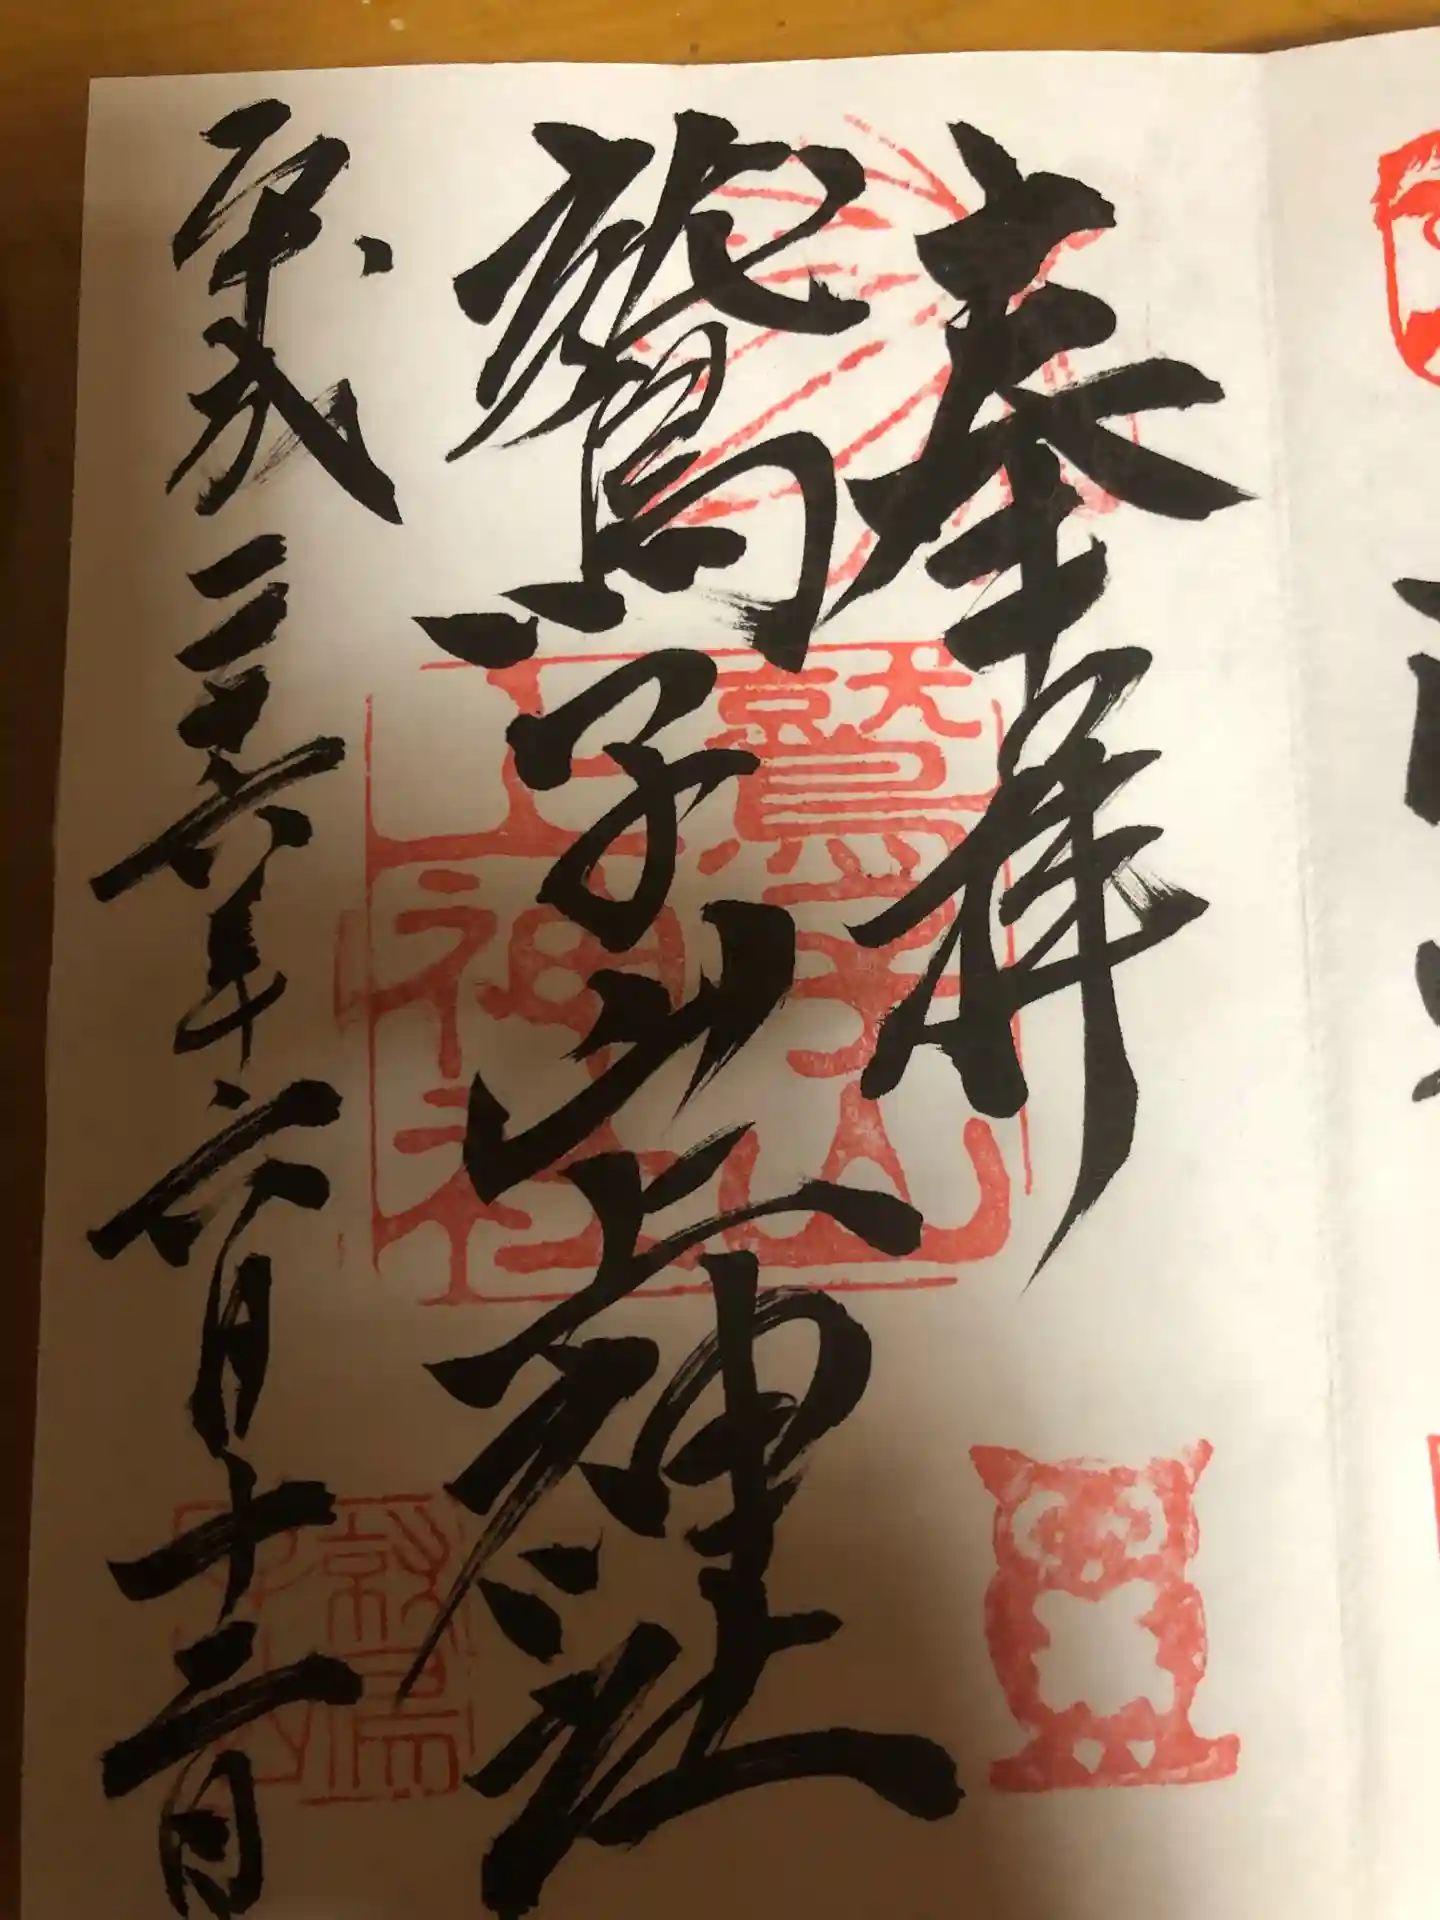 奉拝
鷲子山上神社
平成二十六年六月十二日
鷲子山
上神社